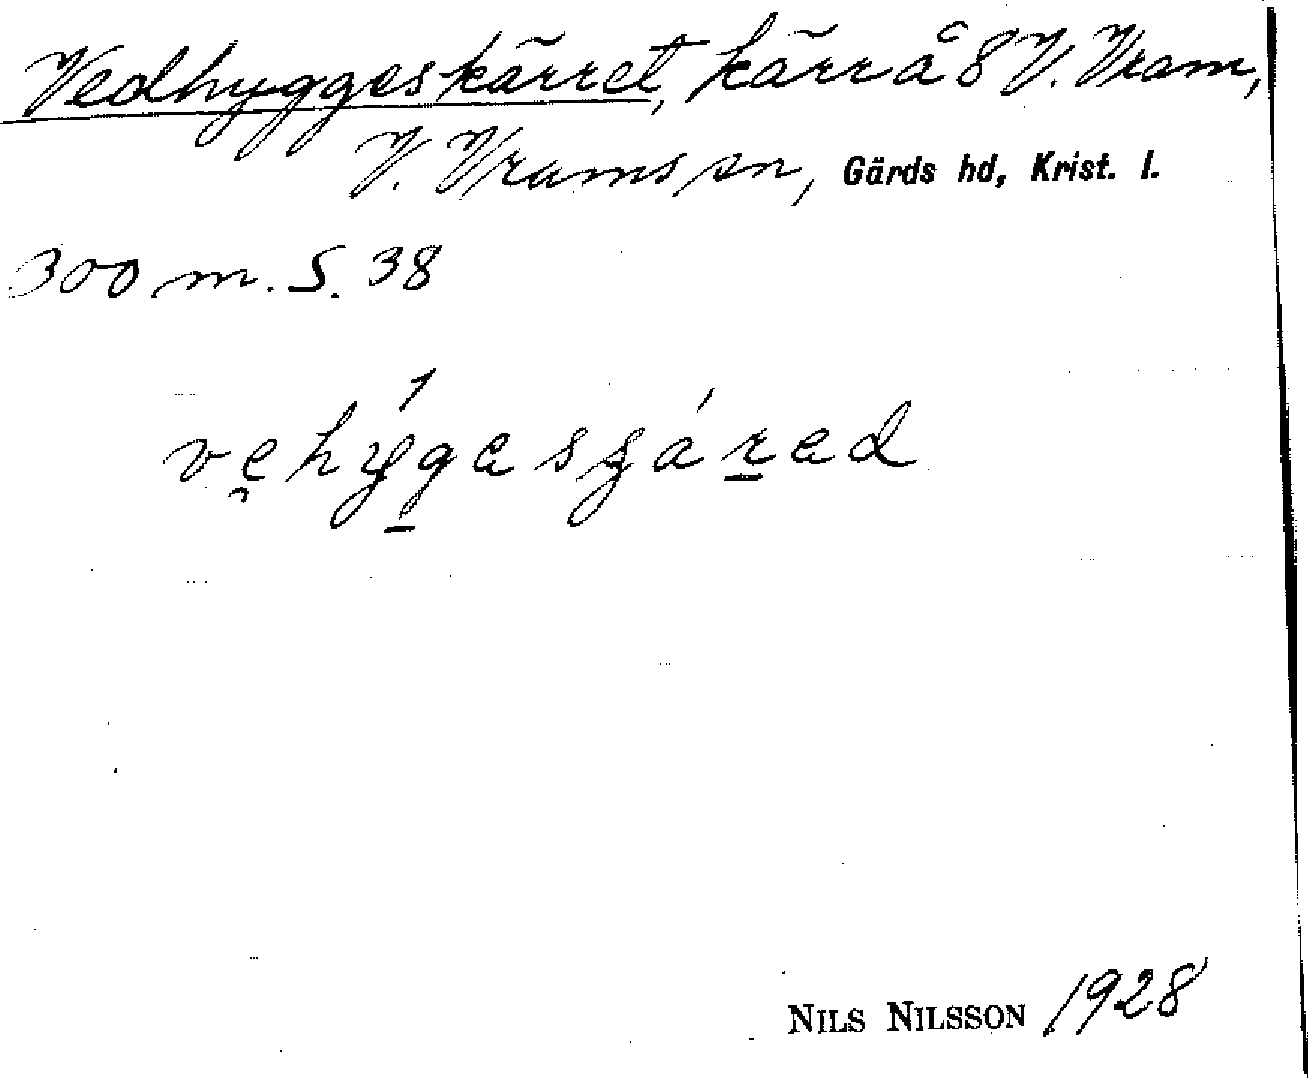 Vedhyggeskärret, kärr å 8 V. Vram,
V. Vrams sn, Gärds hd, Krist. l.
300 m. S. 38
NILS NILSSON 1928